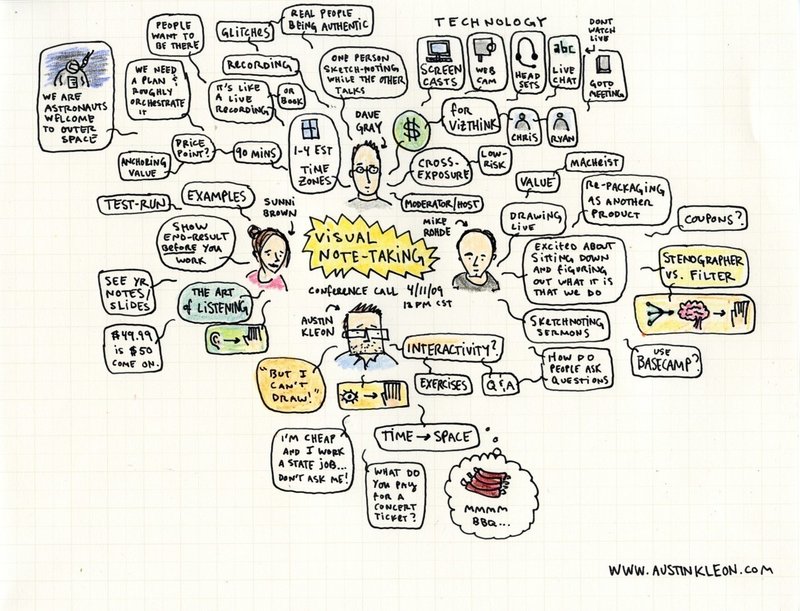 PEOPLE
WANT TO
BE THERE
GLITCHES
REAL PEOPLE
BEING AUTHENTIC
TECHNOLOGY
SCREEN
CASTS
WEB
CAM
HEAD
SETS
abc
LIVE
CHAT
DONT
WATCH
LIVE
GOTO
MEETING
WE ARE
ASTRONAUTS
WELCOME
TO OUTER
SPACE
WE NEED
A PLAN &
ROUGHLY
ORCHESTRATE
IT
RECORDING
IT'S LIKE
A LIVE
RECORDING
OR
BOOK
ONE PERSON
SKETCH-NOTING
WHILE THE OTHER
TALKS
DAVE
GRAY
$
for
VIZTHINK
CHRIS
RYAN
ANCHORING
VALUE
PRICE
POINT?
90 MINS
1-4 EST
TIME
ZONES
CROSS-
EXPOSURE
LOW-
RISK
MODERATOR/HOST
TEST-RUN
EXAMPLES
SUNNI
BROWN
SHOW
END-RESULT
BEFORE YOU
WORK
SEE YR
NOTES/
SLIDES
THE ART
of LISTENING
$49.99
IS $50
COME ON.
VISUAL
NOTE-TAKING
CONFERENCE CALL 4/11/09
12 PM CST
MIKE
ROHDE
VALUE
MACHEIST
DRAWING
LIVE
RE-PACKAGING
AS ANOTHER
PRODUCT
COUPONS?
EXCITED ABOUT
SITTING DOWN
AND FIGURING
OUT WHAT IT IS
THAT WE DO
STENOGRAPHER
VS. FILTER
SKETCHNOTING
SERMONS
USE
BASECAMP?
AUSTIN
KLEON
INTERACTIVITY?
EXERCISES
Q&A
HOW DO
PEOPLE ASK
QUESTIONS
"BUT I
CAN'T
DRAW!"
I'M CHEAP
AND I WORK
A STATE JOB...
DON'T ASK ME!
TIME → SPACE
WHAT DO
YOU PAY
FOR A
CONCERT
TICKET?
MMMM
BBQ...
WWW.AUSTINKLEON.COM